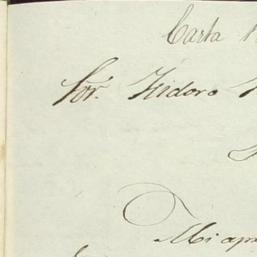 Carta
Sor. Isidoro
Mi apr